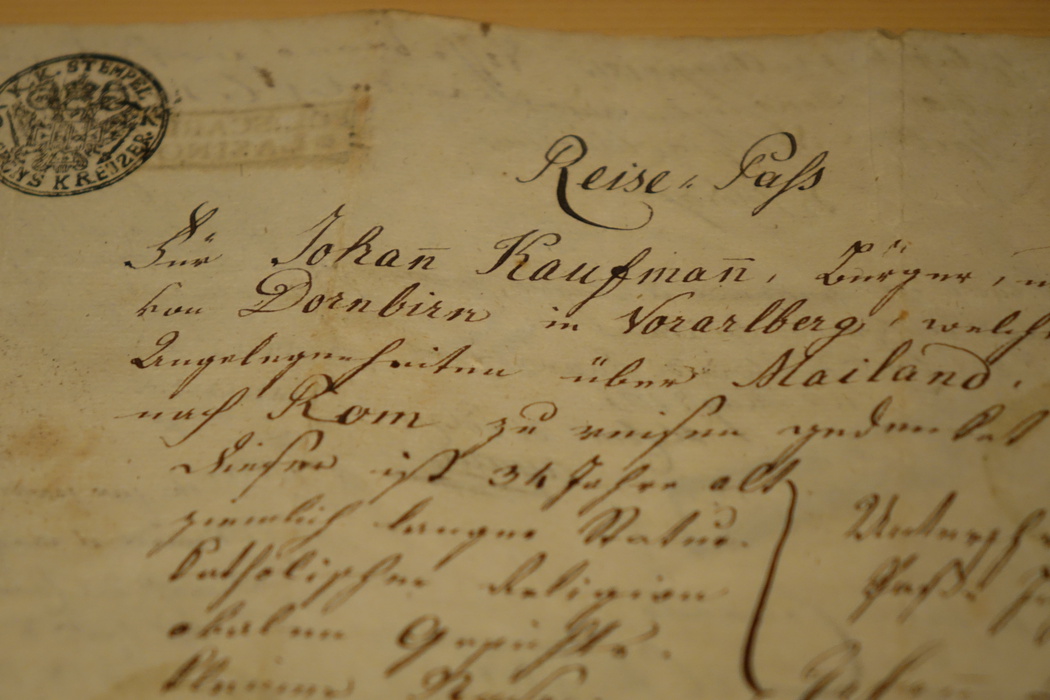 K. K. STEMPEL
KREUZER
Reise-Paß
Für Johan̅ Kaufman̅, Bürger,
von Dornbirn in Vorarlberg, welch
Angelegenheiten über Mailand,
nach Rom zu reisen gedenket
Dieser ist 34 Jahre alt
ziemlich langer Statur.
katholischer Religion
ovalen Gesichts.
Kleine Nase